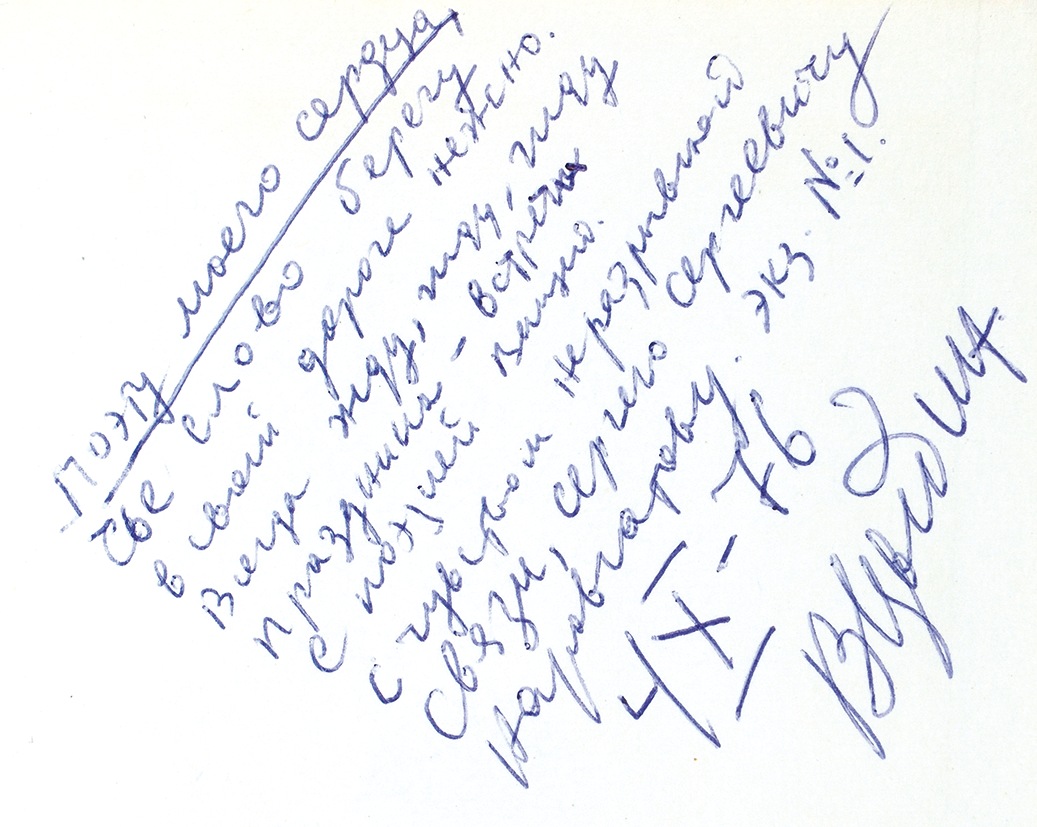 Поэту моего сердца,
Твое слово берегу
в моей дороге нежно.
жду, жду, жду
праздника - встречи
с поэзией
С чувством неразрывной
связи, Сергею Сергеевичу
Наровчатову. Экз. №1.
76
ВЦыбин